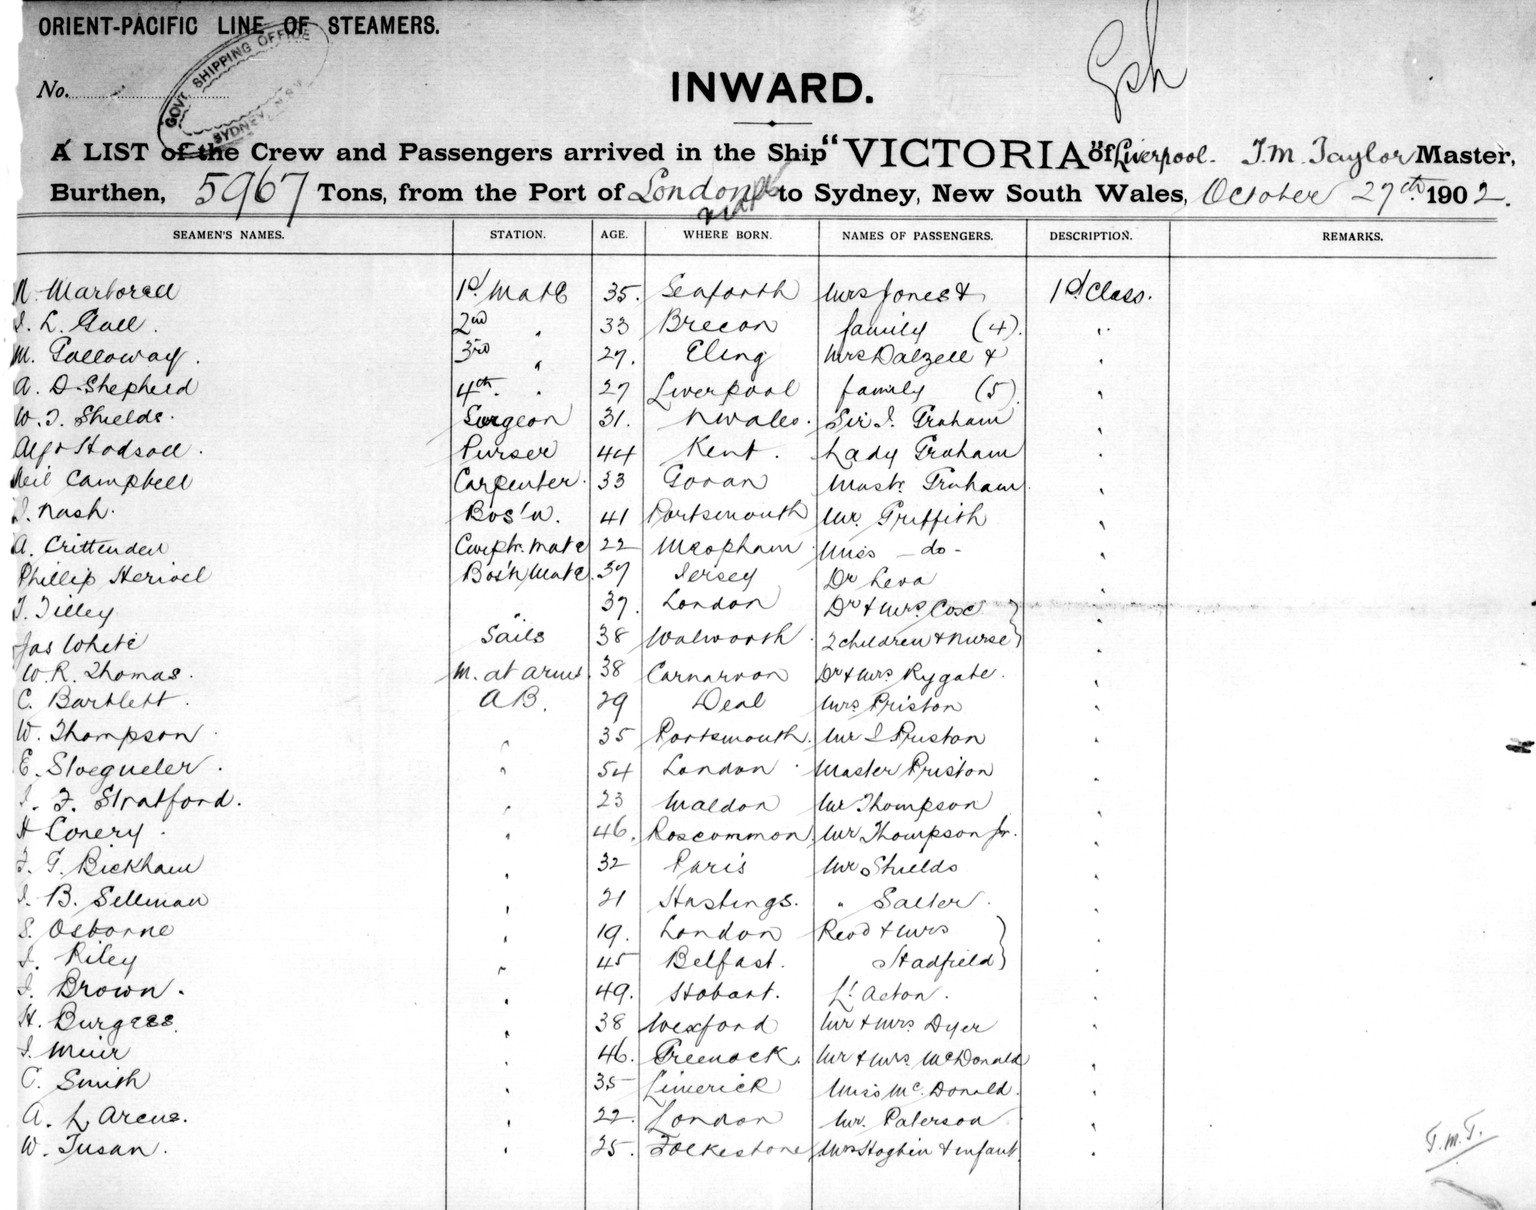 ORIENT-PACIFIC LINE OF STEAMERS.
GOVT SHIPPING OFFICE
SYDNEY N.S.W.
No.
INWARD.
A LIST of the Crew and Passengers arrived in the Ship "VICTORIA" of Liverpool. T.M. Taylor Master,
Burthen, 5967 Tons, from the Port of London to Sydney, New South Wales, October 27th 1902.
SEAMEN'S NAMES. STATION. AGE. WHERE BORN. NAMES OF PASSENGERS. DESCRIPTION. REMARKS.
1st Mate 35. Seaforth Mrs Jones & 1st Class.
2nd " 33 Brecon family (4). "
M. Galloway. 3rd " 27. Eling Mrs Dalzell & "
A. D. Shepherd 4th. " 27 Liverpool family (5) "
W. J. Shields. Surgeon 31. N Wales. Sir J. Graham "
Hodsoll. Purser 44 Kent. Lady Graham "
Neil Campbell Carpenter. 33 Govan Mastr. Graham "
J. Nash. Bos'n. 41 Portsmouth Mr. Griffith "
A. Crittenden Carptr. Mate 22 Meopham Miss - do - "
Phillip Herivel Bos'n Mate. 37 Jersey Dr Leva "
T. Tilley " 37. London Dr & Mrs. Cox "
Jas White Sails 38 Walworth 2 children & Nurse "
W. R. Thomas. M. at arms. 38 Carnarvon Dr & Mrs Rygate. "
C. Bartlett. A B. 29 Deal Mrs. Priston "
W. Thompson " 35 Portsmouth. Mr J Priston "
E. " 54 London Master Priston "
J. F. Stratford. " 23 Maldon Mr Thompson "
H Conery. " 46. Roscommon Mr Thompson Jr. "
F. G. Bickham " 32 Paris Mrs Shields "
J. B. Sellman " 21 Hastings. " Salter. "
S. Osborne " 19. London Revd & Mrs "
J. Riley " 45 Belfast. Hadfield "
J. Brown. " 49. Hobart. Lt Acton. "
H. Burgess. " 38 Wexford Mr & Mrs. Dyer "
J. Muir " 46. Greenock. Mr & Mrs. McDonald "
C. Smith " 35 Limerick Miss Mc. Donald. "
A. L. Arcus. " 22. London Mr. Paterson "
W. Tusan. " 25. Folkestone Mrs & infant "
T.M.T.